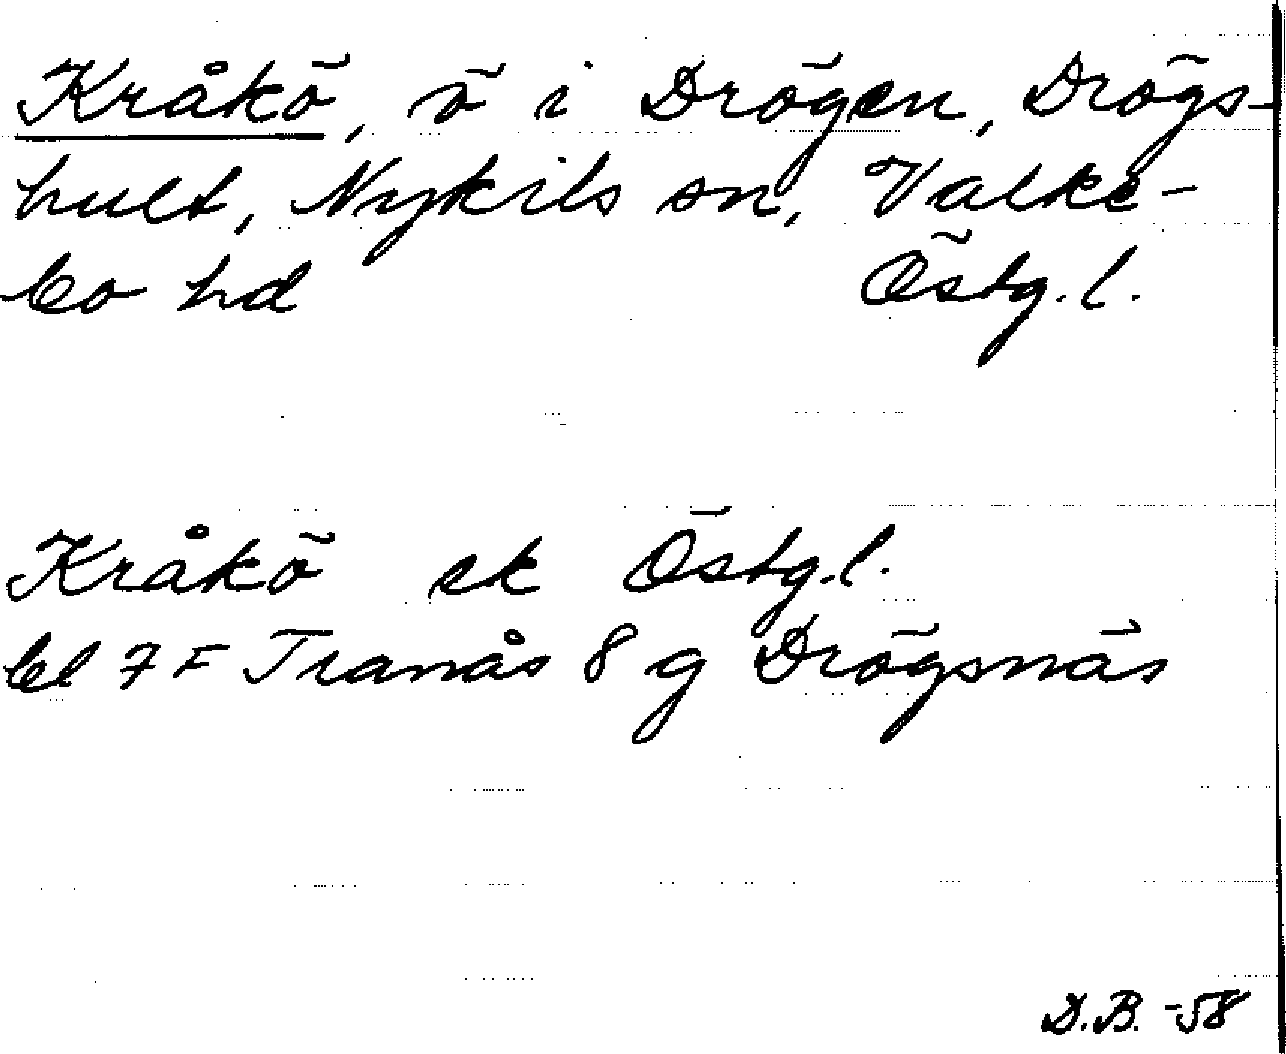 Kråkö, ö i Drögen, Drögs-
hult, Nykils sn, Valke-
bo hd Östg.l.
Kråkö ek Östg.l.
bl 7 F Tranås 8 g Drögsnäs
D.B. -58